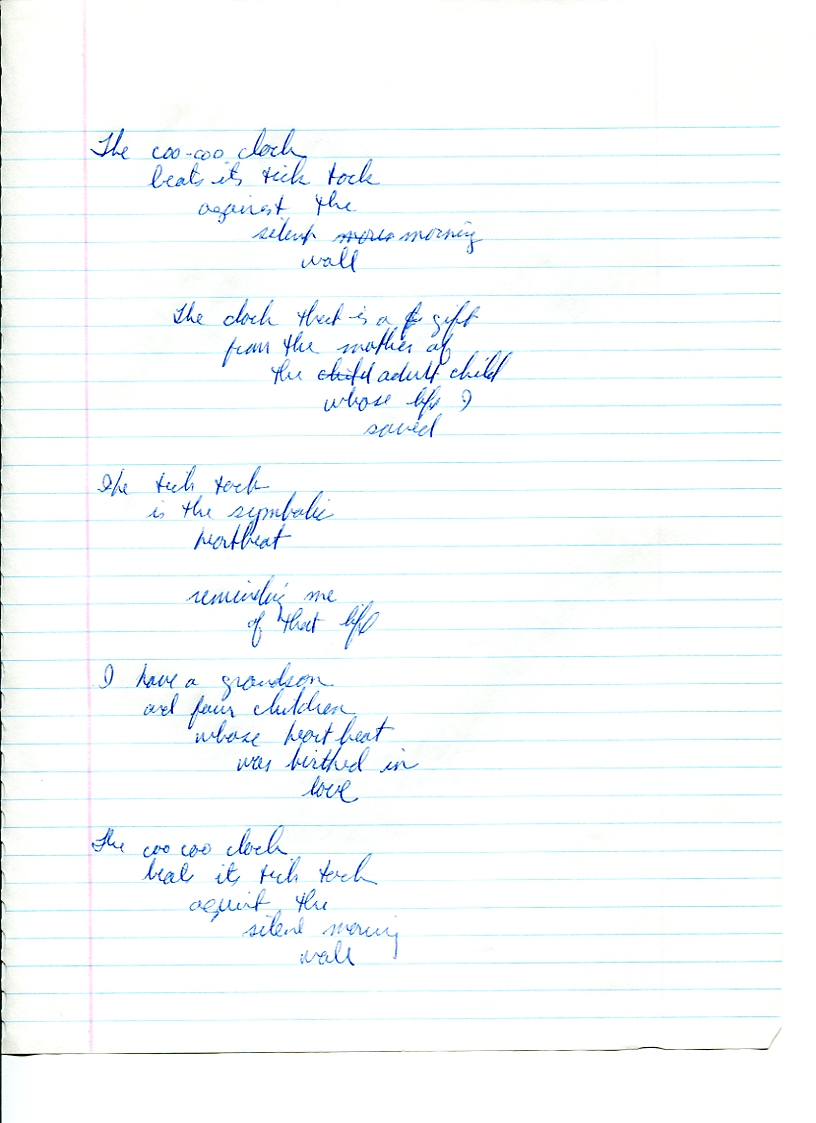 The coo-coo clock
beats its tick tock
against the
silent morning
wall
The clock that is a gift
from the mother of
the child adult child
whose life I
saved
The tick tock
is the symbolic
heartbeat
reminding me
of that life
I have a grandson
and four children
whose heartbeat
was birthed in
love
The coo coo clock
beats its tick tock
against the
silent morning
wall